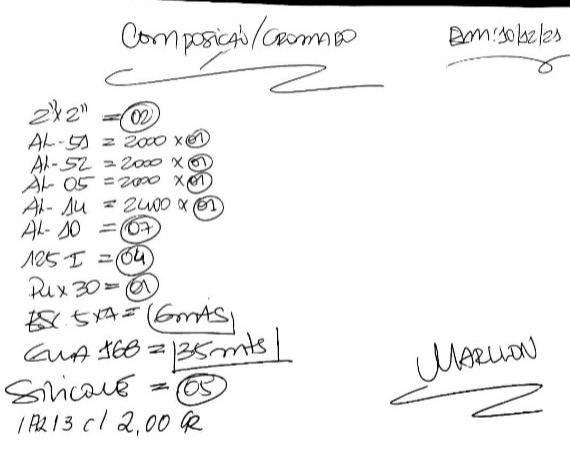 Composição/Cromado Em: 10/12/21
2"x 2" = 02
AL-51 = 2000 x 01
AL-52 = 2000 x 01
AL-05 = 2000 x 01
AL-14 = 2400 x 01
AL-10 = 07
125 I = 04
Pux 30 = 01
ESC. 5x7= 6mts
GUA 168 = 35mts
Silicone = 05
c/ 2,00
Marllon